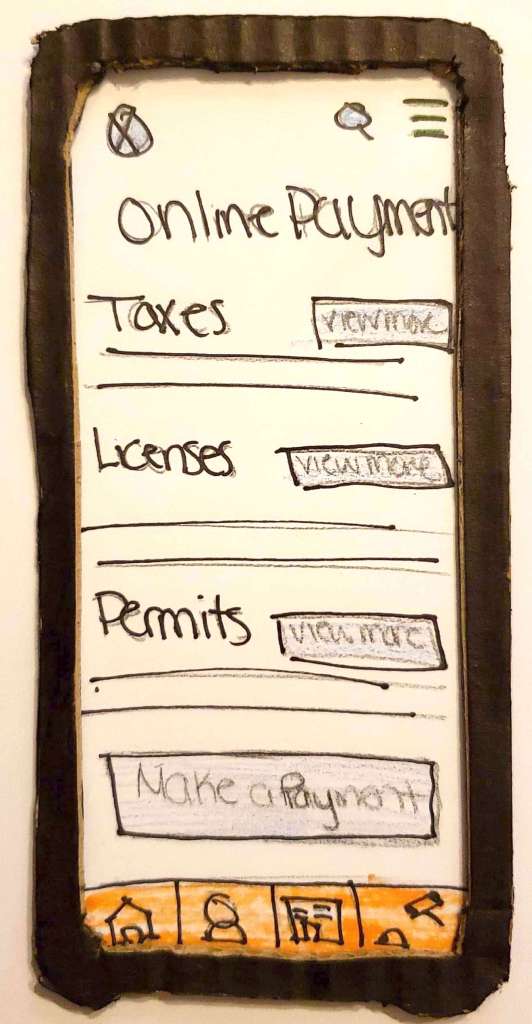 Online Payment
Taxes
view more
Licenses
view more
Permits
view more
Make a Payment